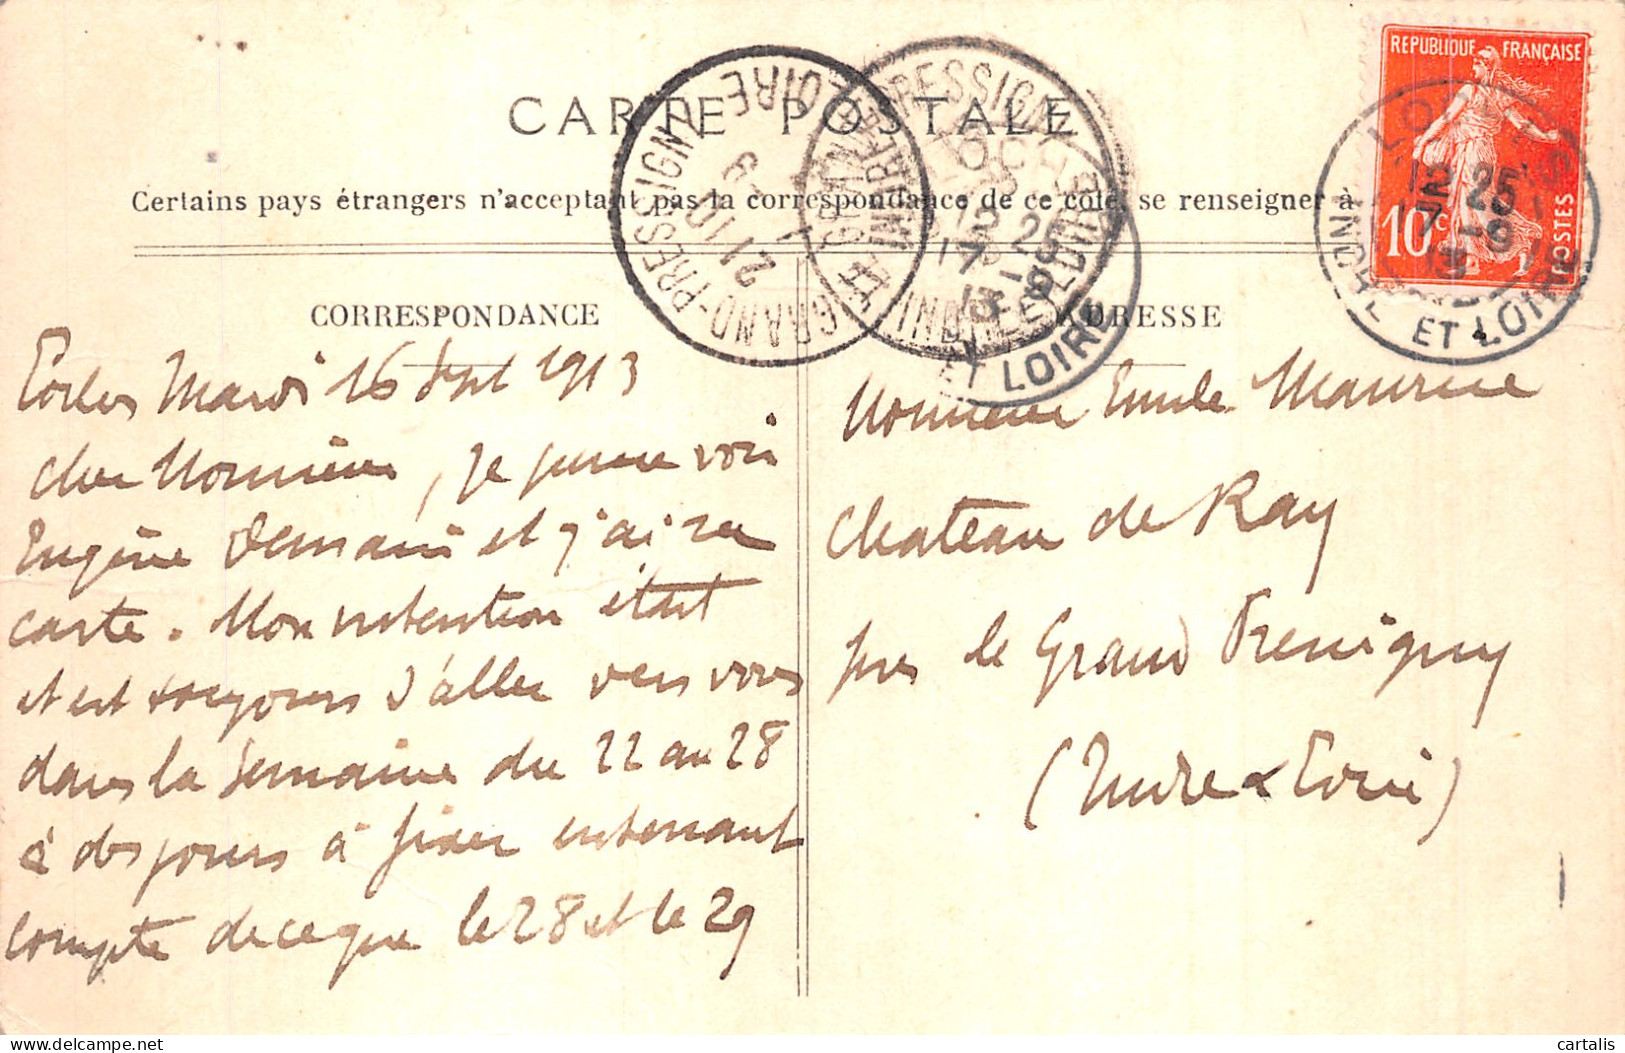 REPUBLIQUE FRANÇAISE
10c
POSTES
CARTE POSTALE
Certains pays étrangers n'acceptant pas la correspondance de ce côté, se renseigner à
LE GRAND-PRESSIGNY
INDRE ET LOIRE
21 10
17 - 9
LOCHES
12 25
17 - 9
13
INDRE ET LOIRE
CORRESPONDANCE
ADRESSE
Mardi 16 Sept 1913
cher Monsieur, je pense voir
Eugène demain et j'ai sa
carte. Mon intention était
et est toujours d'aller vers vous
dans la semaine du 22 au 28
à des jours à fixer en tenant
compte de ce que le 28 et le 29
Monsieur Emile Maurice
Chateau de Ray
près le Grand Pressigny
(Indre & Loire)
cartalis